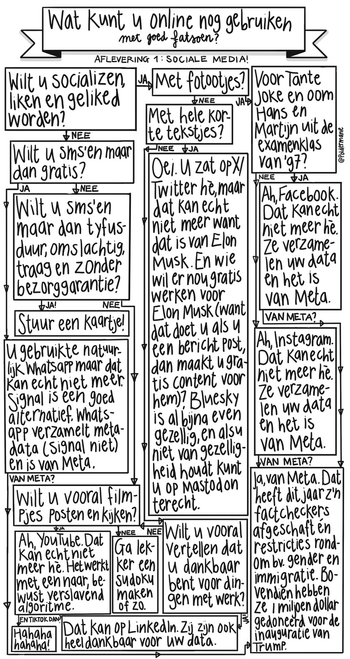 Wat kunt u online nog gebruiken
met goed fatsoen?
AFLEVERING 1: SOCIALE MEDIA!
Wilt u socializen,
liken en geliked
worden?
JA
Met fotootjes?
NEE
JA
Voor Tante
Joke en oom
Hans en
Martijn uit de
examenklas
van '97?
NEE
Met hele kor-
te tekstjes?
NEE
JA
Wilt u sms'en maar
dan gratis?
JA
NEE
Wilt u sms'en
maar dan tyfus-
duur, omslachtig,
traag en zonder
bezorggarantie?
JA!
NEE
Stuur een kaartje!
U gebruikte natuur-
lijk Whatsapp maar dat
kan echt niet meer.
Signal is een goed
alternatief. Whats-
app verzamelt meta-
data (Signal niet)
en is van Meta.
VAN META?
Oei. U zat op X/
Twitter hè, maar
dat kan echt
niet meer want
dat is van Elon
Musk. En wie
wil er nou gratis
werken voor
Elon Musk (want
dat doet u als u
een bericht post,
dan maakt u gra-
tis content voor
hem)? Bluesky
is al bijna even
gezellig, en als u
niet van gezellig-
heid houdt kunt
u op Mastodon
terecht.
NEE
JA
Ah, Facebook.
Dat kan echt
niet meer hè.
Ze verzame-
len uw data
en het is
van Meta.
VAN META?
Ah, Instagram.
Dat kan echt
niet meer hè.
Ze verzame-
len uw data
en het is
van Meta.
VAN META?
Ja, van Meta. Dat
heeft dit jaar z'n
factcheckers
afgeschaft en
restricties rond-
om bv. gender en
immigratie. Bo-
vendien hebben
ze 1 miljoen dollar
gedoneerd voor de
inauguratie van
Trump.
Wilt u vooral film-
pjes posten en kijken?
JA
NEE
NEE
Ah, YouTube. Dat
kan echt niet
meer hè. Het werkt
met een naar, be-
wust verslavend
algoritme.
Ga lek-
ker een
sudoku
maken
of zo.
Wilt u vooral
vertellen dat
u dankbaar
bent voor din-
gen met werk?
JA
EN TIKTOK DAN?
Hahaha
hahaha!
Dat kan op LinkedIn. Zij zijn ook
heel dankbaar voor uw data.